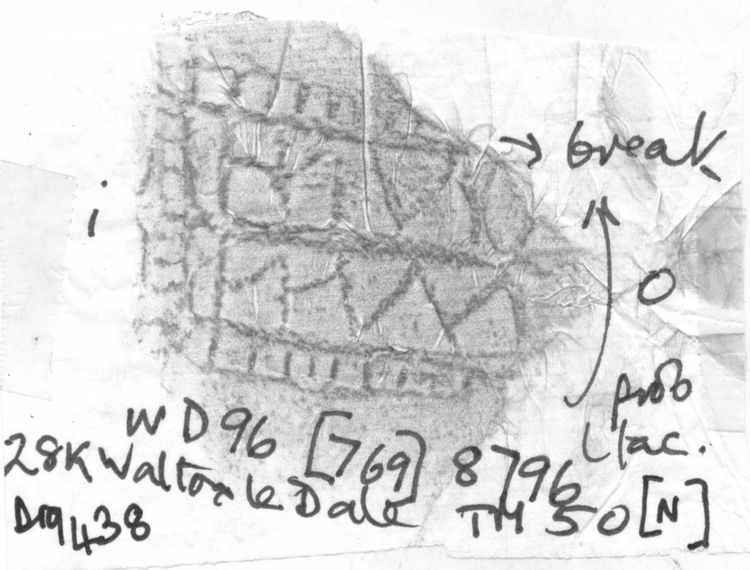 → break
i
O
prob
WD96 [769] 8796
28K Walton le Dale TM 50 [N]